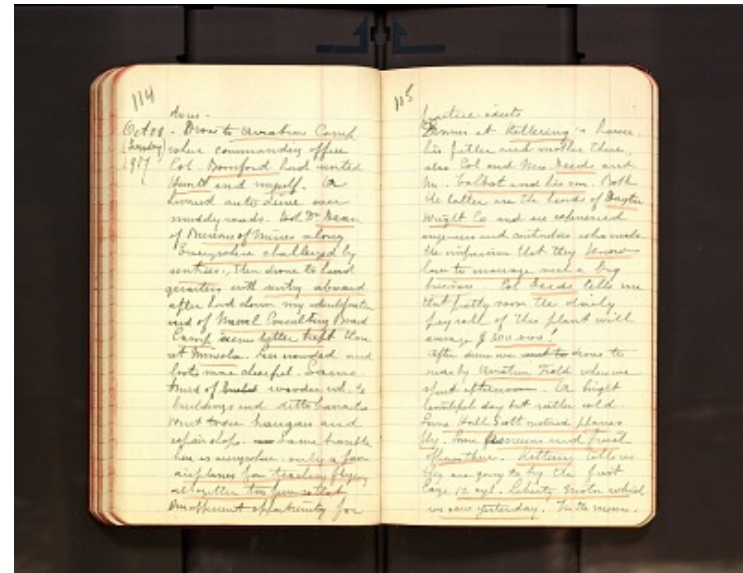 114
tors -
Oct 28 - Drove to Aviation Camp
(Sunday) where commanding officer
1917 Col. Bomford had invited
Hunt and myself. A
hurried auto drive over
muddy roads. Dr Dean
of Bureau of Mines along
Everywhere challenged by
sentries, then drove to head
quarters with sentry aboard
after had shown my identification
card of Naval Consulting Board
Camp seems better kept than
at Mineola. Less crowded and
looks more cheerful. Same
kind of wooden white
buildings and ditto barracks
went to see hangars and
repair shops. Same trouble
here as everywhere only a few
airplanes for teaching flying
altogether too few so that
insufficient opportunity for
115
practice exists
Dinner at Kettering's house
his father and mother there,
also Col and Mrs. Deeds and
Mr. Talbot and his son. Both
the latter are the heads of Dayton
Wright Co and are experienced
engineers and contractors who make
the impression that they know
how to manage such a big
business. Col Deeds tells me
that pretty soon the daily
payroll of this plant will
average $ 300.000!
After dinner we went to drove to
nearby Aviation Field where we
spent afternoon. A bright
beautiful day but rather cold.
Some Hall Scott motored planes
fly. Some and French
officers there. Kettering tells us
they are going to try the first
large 12 cyl. Liberty Motor which
we saw yesterday. In the mean-